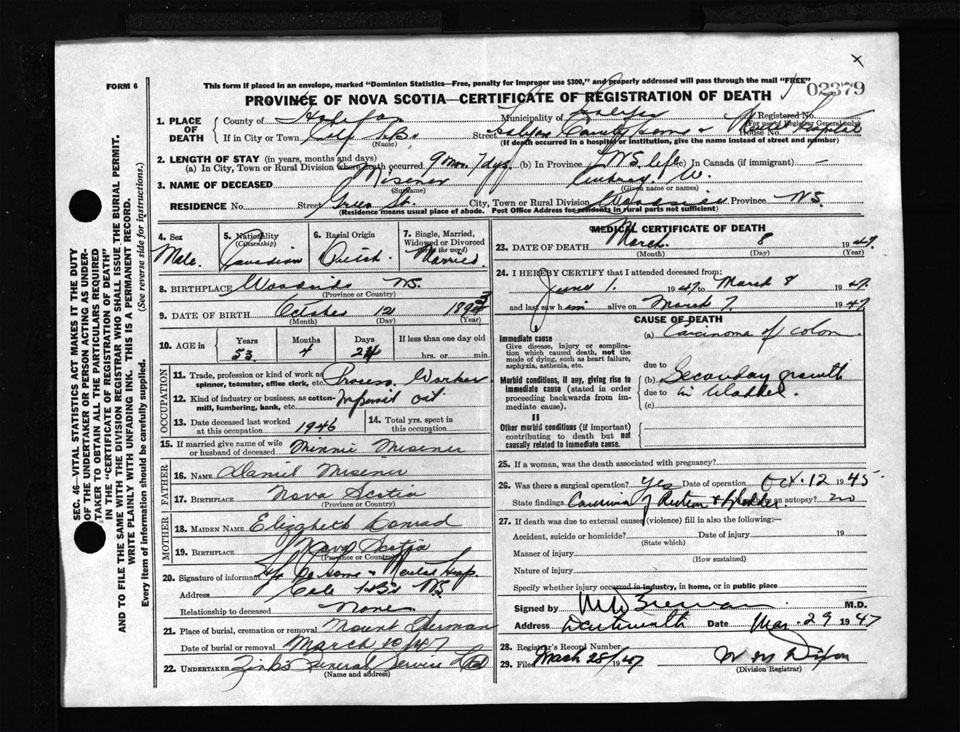 This form if placed in an envelope, marked "Dominion Statistics—Free, penalty for improper use $300," and properly addressed will pass through the mail "FREE"
FORM 6
02379
PROVINCE OF NOVA SCOTIA—CERTIFICATE OF REGISTRATION OF DEATH
1. PLACE OF DEATH
County of Halifax
Municipality of Halifax
Registered No.
(For use of Registrar General only)
If in City or Town Cole Hbr
(Name)
Street Halifax County Home & Mental Hospital
House No.
(If death occurred in a hospital or institution, give the name instead of street and number)
2. LENGTH OF STAY (in years, months and days)
(a) In City, Town or Rural Division where death occurred 9 mos. 7 dys. (b) In Province NS. life (c) In Canada (if immigrant) —
3. NAME OF DECEASED Misener
(Surname)
W.
(Given name or names)
RESIDENCE No. Street Green St. City, Town or Rural Division Woodside Province N.S.
(Residence means usual place of abode. Post Office Address for residents in rural parts not sufficient)
4. Sex
Male
5. Nationality
(Citizenship)
Canadian
6. Racial Origin
Dutch
7. Single, Married, Widowed or Divorced
(write the word)
Married
8. BIRTHPLACE Woodside NS.
(Province or Country)
9. DATE OF BIRTH October 12 1893
(Month) (Day) (Year)
10. AGE in
Years Months Days If less than one day old
53 4 24 hrs. or min.
OCCUPATION
11. Trade, profession or kind of work as spinner, teamster, office clerk, etc. Process Worker
12. Kind of industry or business, as cotton-mill, lumbering, bank, etc. Imperial Oil
13. Date deceased last worked at this occupation 1946
14. Total yrs. spent in this occupation
15. If married give name of wife or husband of deceased Minnie Misener
FATHER
16. NAME Daniel Misener
17. BIRTHPLACE Nova Scotia
(Province or Country)
MOTHER
18. MAIDEN NAME Elizabeth Conrad
19. BIRTHPLACE Nova Scotia
(Province or Country)
20. Signature of informant Hfx Co Home & Mental Hosp.
Address Cole Hbr NS
Relationship to deceased None
21. Place of burial, cremation or removal Mount Herman
Date of burial or removal March 10/47
22. UNDERTAKER Zinks Funeral Service Ltd
(Name and address)
MEDICAL CERTIFICATE OF DEATH
23. DATE OF DEATH March 8 1947
(Month) (Day) (Year)
24. I HEREBY CERTIFY that I attended deceased from:
June 1. 1947 to March 8 1947
and last saw him alive on March 7. 1947
CAUSE OF DEATH
Immediate cause
Give disease, injury or complication which caused death, not the mode of dying, such as heart failure, asphyxia, asthenia, etc.
(a) Carcinoma of colon
due to
Morbid conditions, if any, giving rise to immediate cause (stated in order proceeding backwards from immediate cause).
(b) Secondary growth
due to in bladder.
(c)
II
Other morbid conditions (if important) contributing to death but not causally related to immediate cause.
25. If a woman, was the death associated with pregnancy?
26. Was there a surgical operation? Yes Date of operation Oct. 12 1945
State findings Carcinoma of Rectum & bladder Was there an autopsy? no
27. If death was due to external causes (violence) fill in also the following:—
Accident, suicide or homicide? Date of injury 19
(State which)
Manner of injury
(How sustained)
Nature of injury
Specify whether injury occurred in industry, in home, or in public place
Signed by M.D.
Address Dartmouth Date Mar. 29 1947
28. Registrar's Record Number
29. Filed March 28/1947 W M Dixon
(Division Registrar)
SEC. 46—VITAL STATISTICS ACT MAKES IT THE DUTY OF THE UNDERTAKER OR PERSON ACTING AS UNDERTAKER TO OBTAIN ALL THE PARTICULARS REQUIRED IN THE "CERTIFICATE OF REGISTRATION OF DEATH" AND TO FILE THE SAME WITH THE DIVISION REGISTRAR WHO SHALL ISSUE THE BURIAL PERMIT.
WRITE PLAINLY WITH UNFADING INK. THIS IS A PERMANENT RECORD.
Every item of information should be carefully supplied. (See reverse side for instructions.)